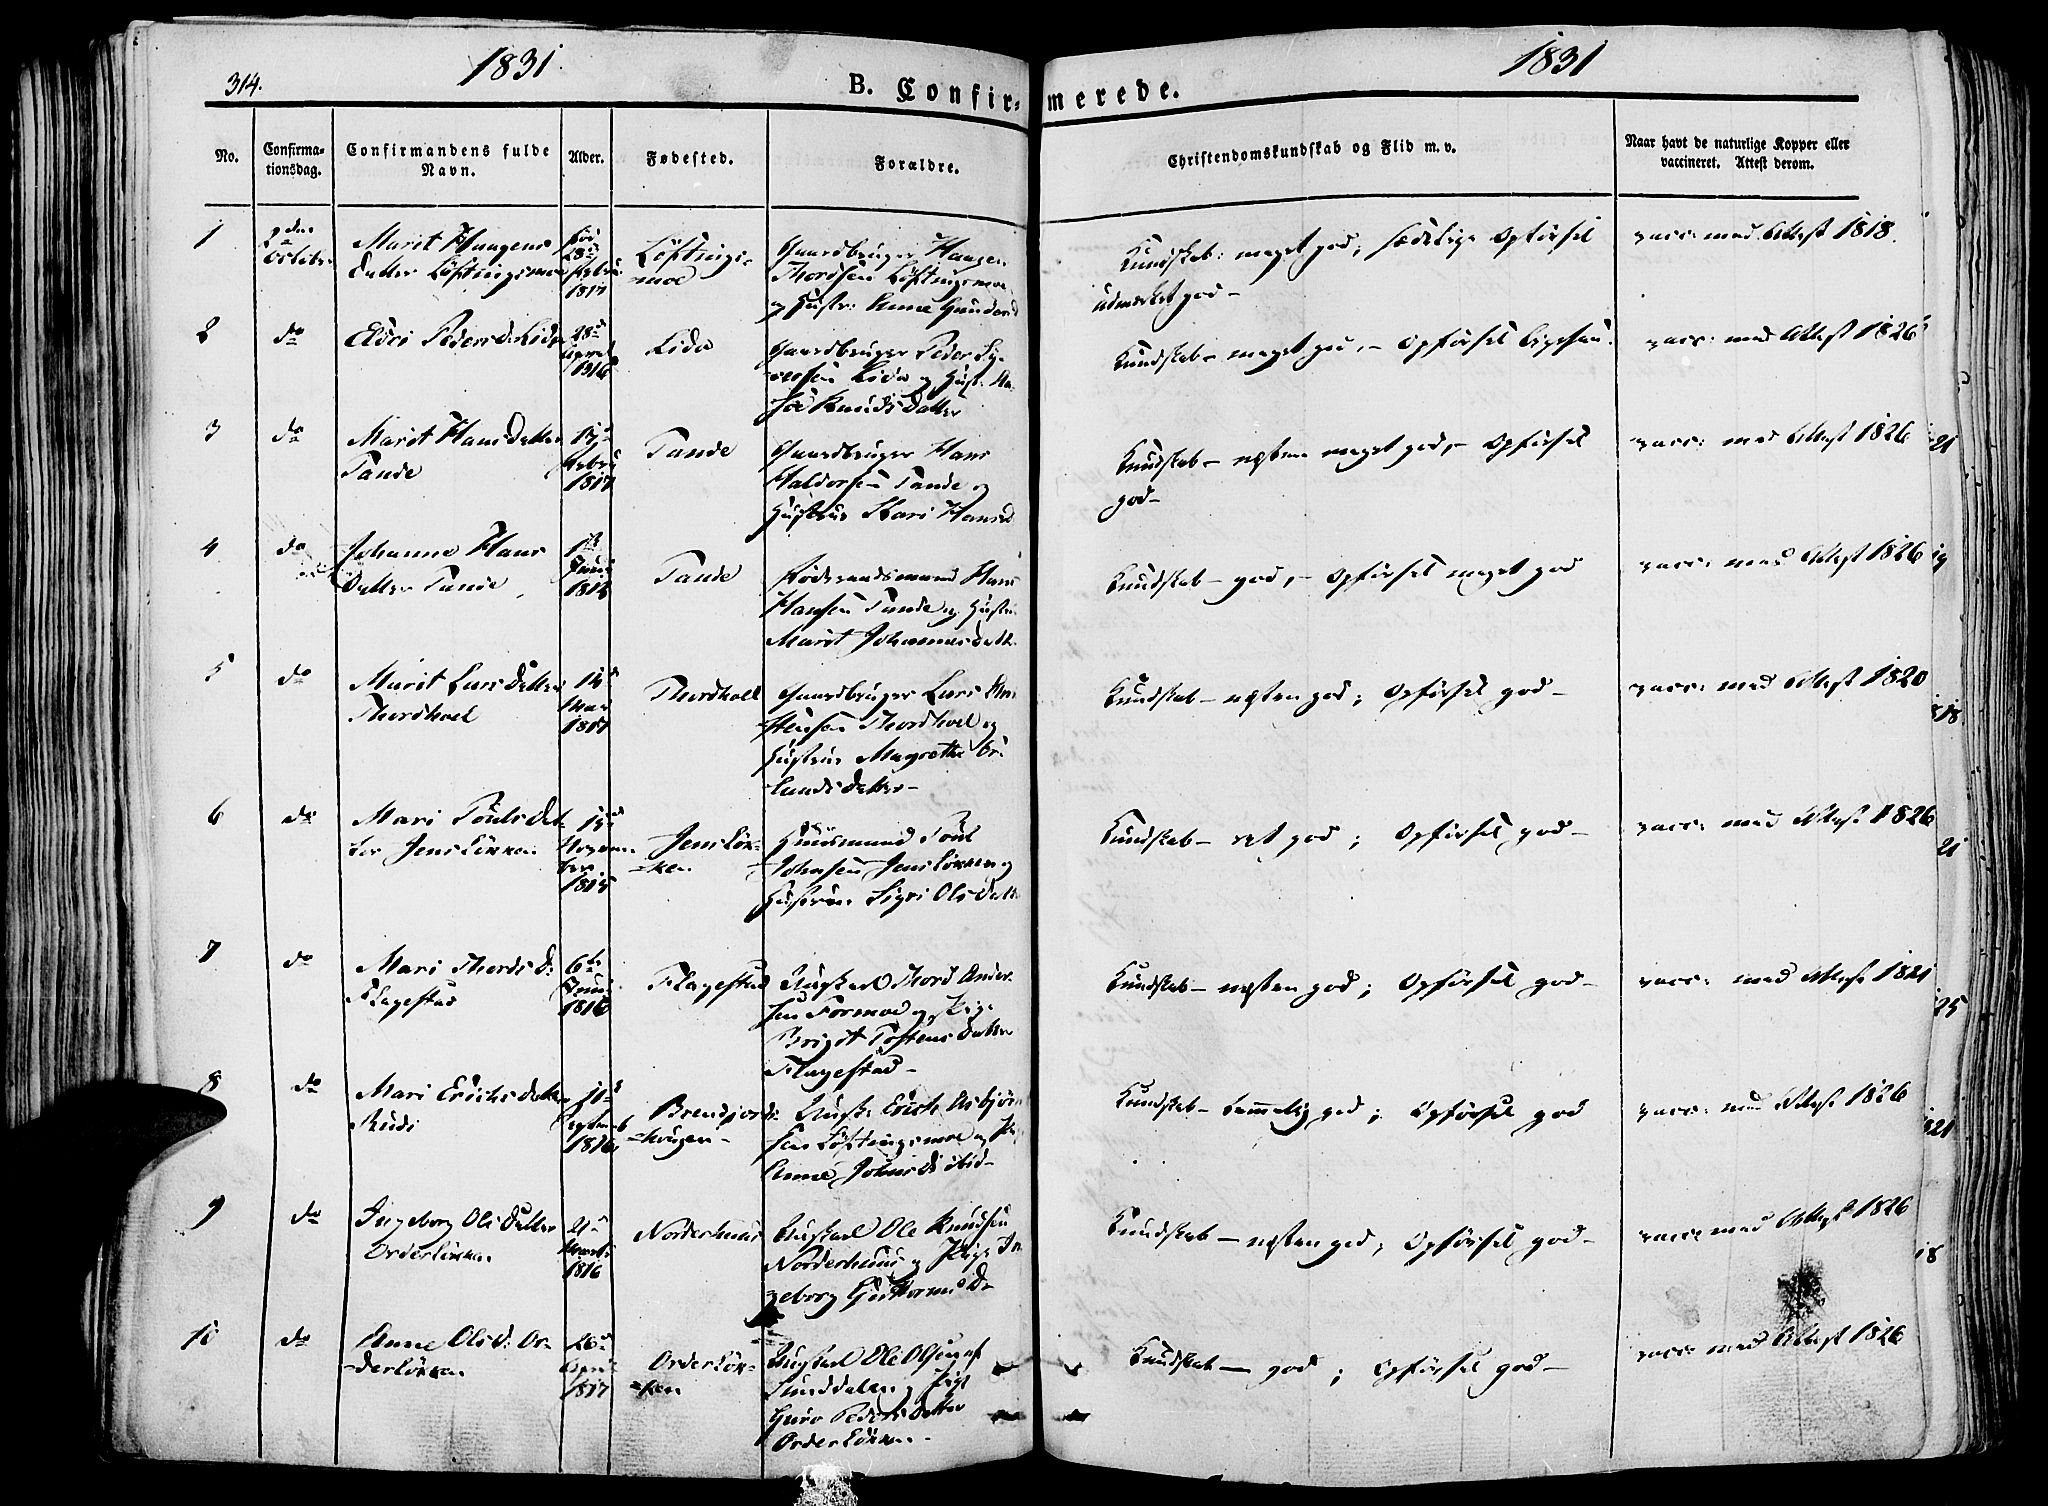 314.
1831
1831
B. Confir-
merede.
No.
Confirma-
tionsdag.
Confirmandens fulde
Navn.
Alder.
Fødested.
Forældre.
Christendomskundskab og Flid m. v.
Naar havt de naturlige Kopper eller
vaccineret. Attest derom.
1
2den
Octbr
Marit Haagens
Datter Löftingsmoe
28de
1817
Löftings-
moe
Gaardbruger Haagen
Thordsen Löftingsmoe
og Hustr: Anne Gunders
Kundskab: meget god; sædelige Opförsel
udmærket god-
vacc: med Attest 1818.
2
do
Eldri Peders D. Lide
28de
April
1816
Lide
Gaardbruger Peder Sy-
versen Lide og Hustr. Aa-
se Knuds Datter
Kundskab- meget god,- Opförsel ligesaa.
vacc: med Attest 1826
3
do
Marit Hans Datter
Tande
Febru
1817
Tande
Gaardbruger Hans
Haldorsen Tande og
Hustrue Kari Hansd
Kundskab- næsten meget god,- Opförsel
god-
vacc: med Attest 1826
21
4
do
Johanne Hans
Datter Tande
Tande
Hans
Hansen Tande og Hustru
Marit Johannes Datt.
Kundskab- god,- Opförsel meget god
vacc: med Attest 1826
19
5
do
Marit Lars Datter
Thordhoel
14de
Mar
1817
Thordhoel
Gaardbruger Lars
Thordhoel og
Hustrue Magrethe Er-
lands Datter-
Kundskab- næsten god; Opförsel god-
vacc: med Attest 1820
818
6
do
Mari Pouls Dat-
ter Jenslökken
15de
Novem-
ber
1815
Jenslök-
ken
Huusmand Poul
Johnsen Jenslökken og
Hustrue Sigri Ols Datt
Kundskab- ret god; Opförsel god-
vacc: med Attest 1826
21
7
do
Mari Thords D:
Flagestad
6te
Juni
1816
Flagestad
Ungkarl Thord Ander-
sen Formoe og Pige
Brigit Tostens Datter
Flagestad-
Kundskab- næsten god; Opförsel god-
vacc: med Attest 1821
25
8
do
Mari Erichs Datter
Rudi
10de
Septemb
1816
Brendjords
haugen-
Ungk: Erich Asbjörn
sen Löftingsmoe og Pig
Anne Johns D: ibid-
Kundskab- temmelig god; Opförsel god
vacc: med Attest 1826
821
9
do
Ingeborg Ols Datter
Orderlökken
21de
Marts
1816
Norderhuus
Ungkarl Ole Knudsen
Norderhuus og Pige In
geborg Guttorms D-
Kundskab- næsten god; Opförsel god-
vacc: med Attest 1826
18
10
do
Anne Ols D: Or-
derlökken
26de
April
1817
Orderlök-
ken
Ungkarl Ole Olsen af
Sunddalen og Pige
Guro Peders Datter
Orderlökken-
Kundskab- god; Opförsel god-
vacc: med Attest 1826